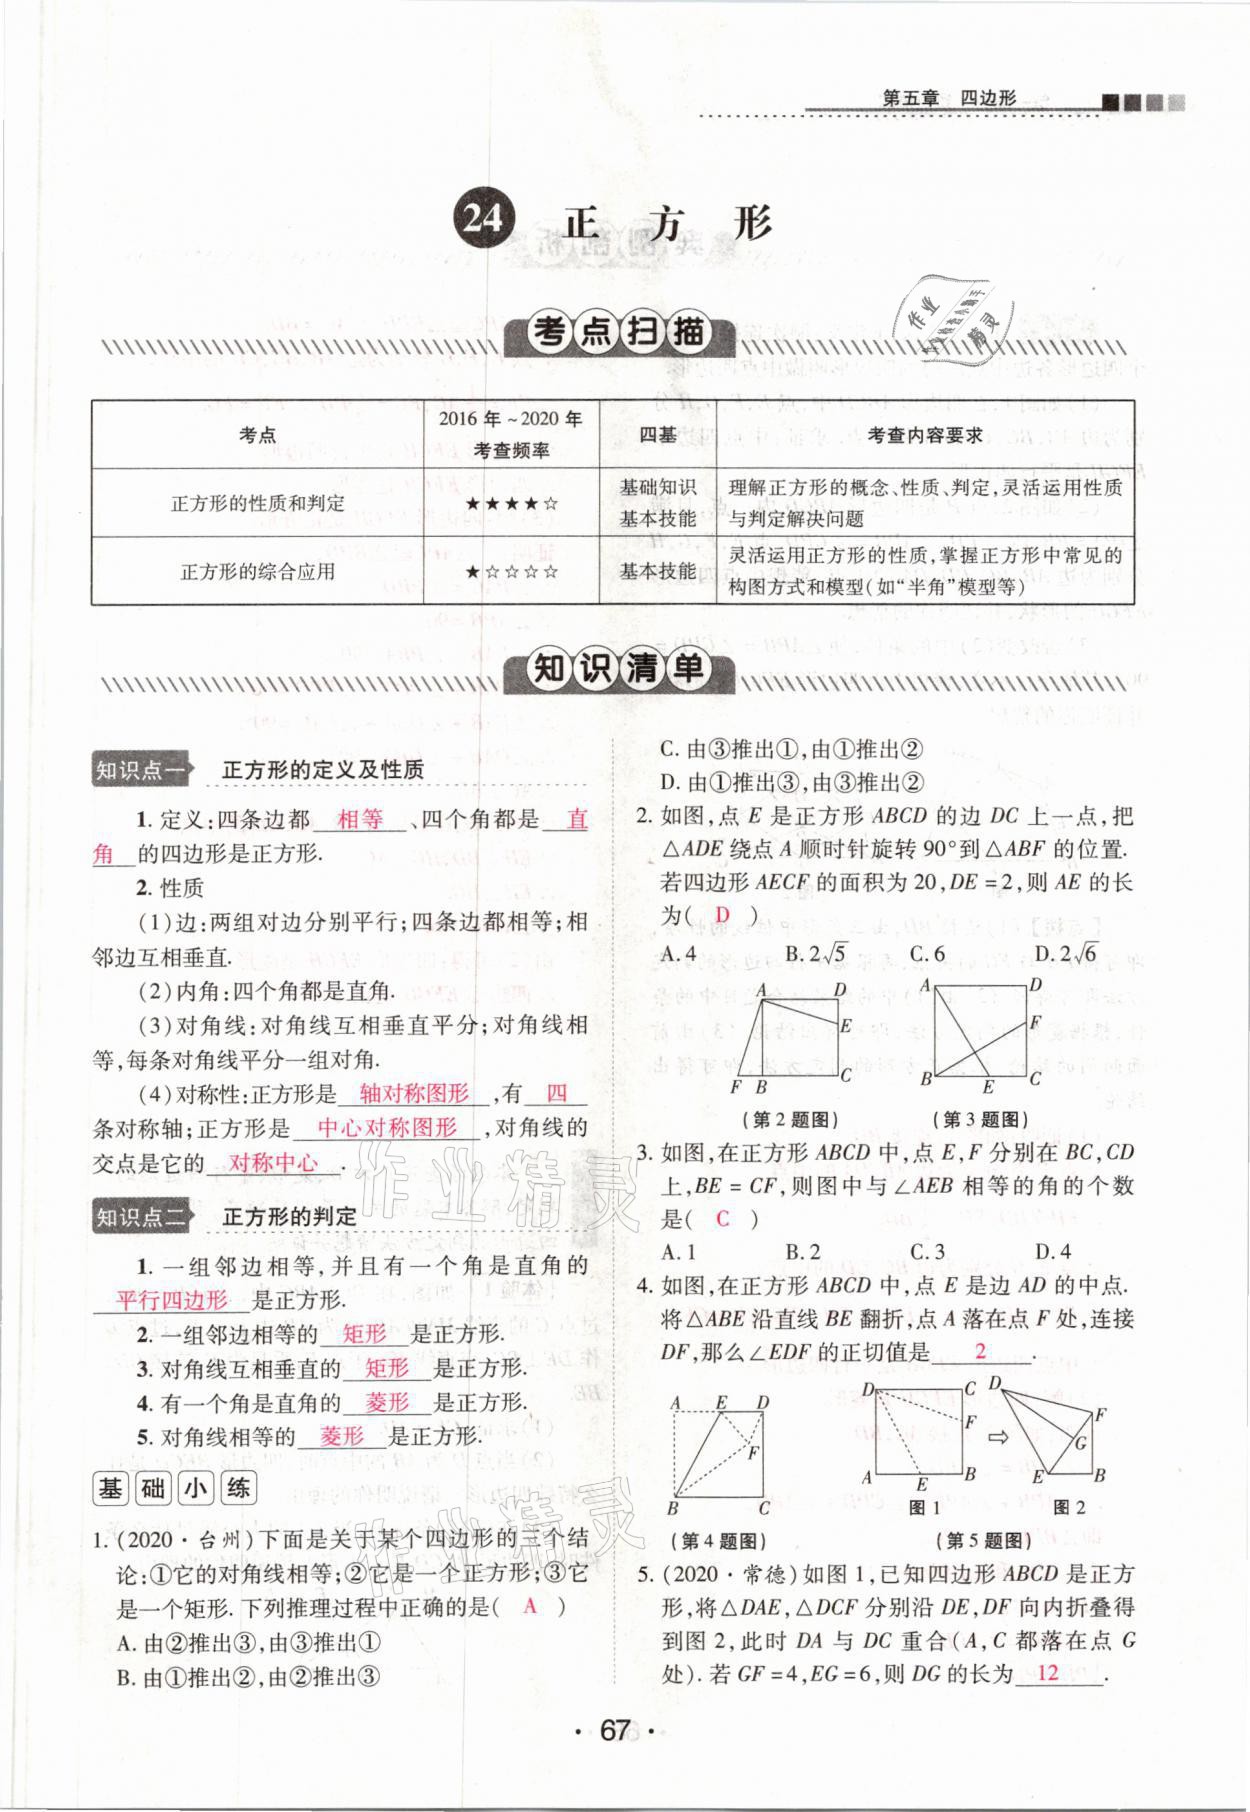 第五章 四边形
24 正方形
考点扫描
考点 2016年~2020年考查频率 四基 考查内容要求
正方形的性质和判定 ★★★★☆ 基础知识 基本技能 理解正方形的概念、性质、判定,灵活运用性质与判定解决问题
正方形的综合应用 ★☆☆☆☆ 基本技能 灵活运用正方形的性质,掌握正方形中常见的构图方式和模型(如“半角”模型等)
知识清单
知识点一 正方形的定义及性质
1. 定义:四条边都 相等 、四个角都是 直
角 的四边形是正方形.
2. 性质
(1)边:两组对边分别平行;四条边都相等;相
邻边互相垂直.
(2)内角:四个角都是直角.
(3)对角线:对角线互相垂直平分;对角线相
等,每条对角线平分一组对角.
(4)对称性:正方形是 轴对称图形 ,有 四
条对称轴;正方形是 中心对称图形 ,对角线的
交点是它的 对称中心 .
知识点二 正方形的判定
1. 一组邻边相等,并且有一个角是直角的
平行四边形 是正方形.
2. 一组邻边相等的 矩形 是正方形.
3. 对角线互相垂直的 矩形 是正方形.
4. 有一个角是直角的 菱形 是正方形.
5. 对角线相等的 菱形 是正方形.
基础小练
1. (2020·台州)下面是关于某个四边形的三个结
论:①它的对角线相等;②它是一个正方形;③它
是一个矩形. 下列推理过程中正确的是( A )
A. 由②推出③,由③推出①
B. 由①推出②,由②推出③
C. 由③推出①,由①推出②
D. 由①推出③,由③推出②
2. 如图,点 E 是正方形 ABCD 的边 DC 上一点,把
△ADE 绕点 A 顺时针旋转 90°到△ABF 的位置.
若四边形 AECF 的面积为 20,DE=2,则 AE 的长
为( D )
A. 4 B. 2√5 C. 6 D. 2√6
A D E F B C
A D F B E C
(第2题图) (第3题图)
3. 如图,在正方形 ABCD 中,点 E,F 分别在 BC,CD
上,BE=CF,则图中与∠AEB 相等的角的个数
是( C )
A. 1 B. 2 C. 3 D. 4
4. 如图,在正方形 ABCD 中,点 E 是边 AD 的中点.
将△ABE 沿直线 BE 翻折,点 A 落在点 F 处,连接
DF,那么∠EDF 的正切值是 2 .
A E D F B C
D C F A E B
⇨
D F G E B
图1 图2
(第4题图) (第5题图)
5. (2020·常德)如图 1,已知四边形 ABCD 是正方
形,将△DAE,△DCF 分别沿 DE,DF 向内折叠得
到图 2,此时 DA 与 DC 重合(A,C 都落在点 G
处). 若 GF=4,EG=6,则 DG 的长为 12 .
作业精灵
作业精灵
·67·